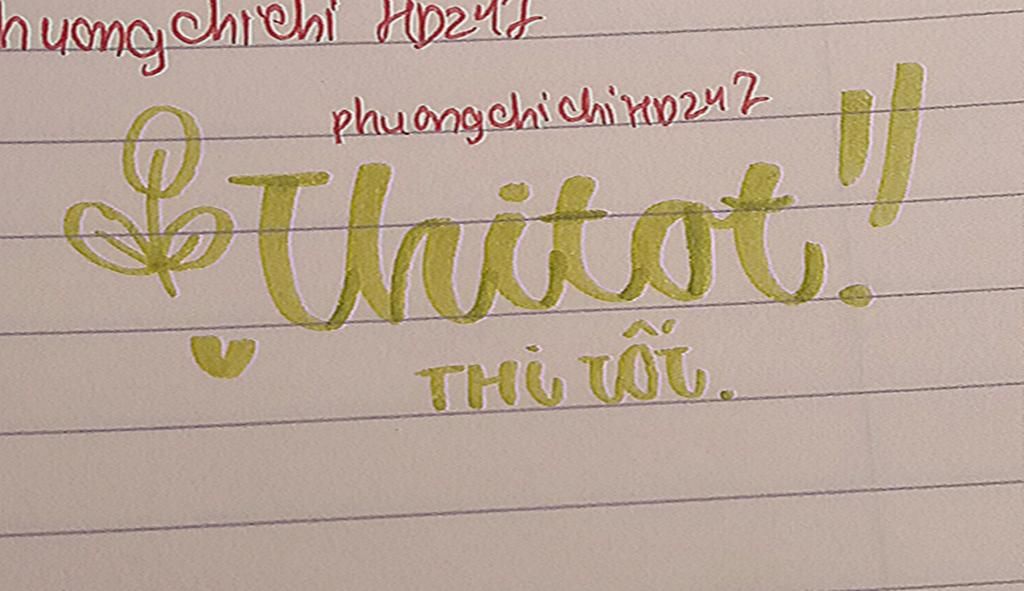 huongchichi HD247
phuongchichiHD247
Thitot.
THi TỐT.